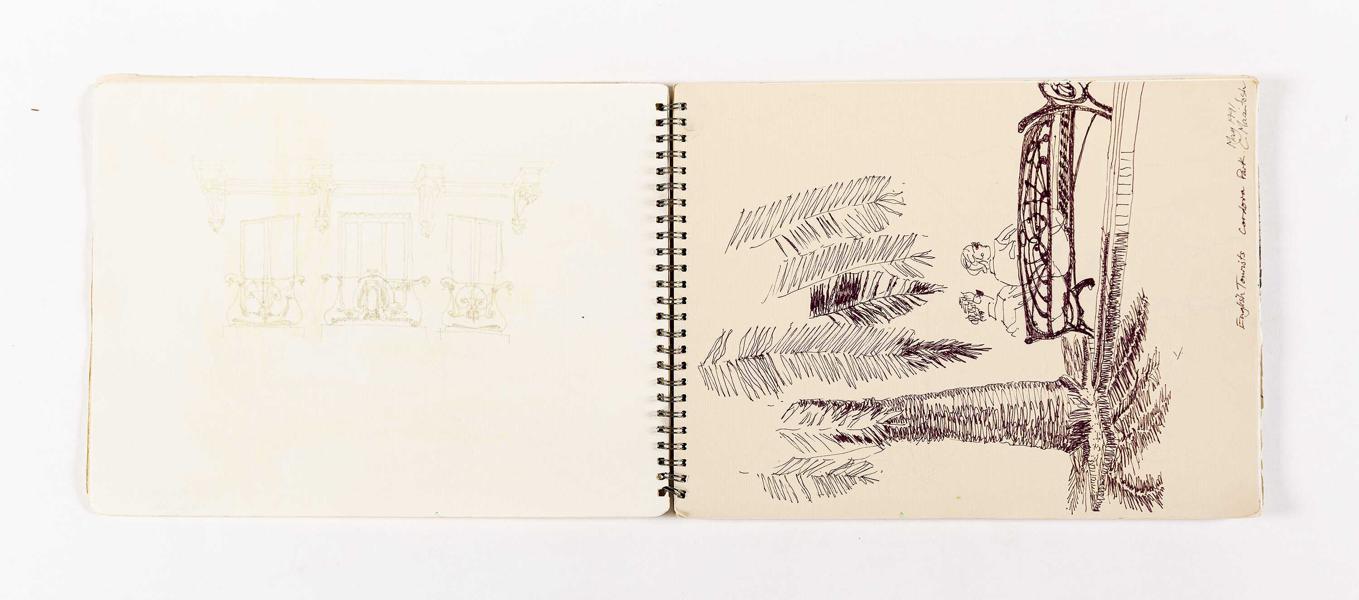 English Tourists Cordova Park May 1991
C. Macintosh